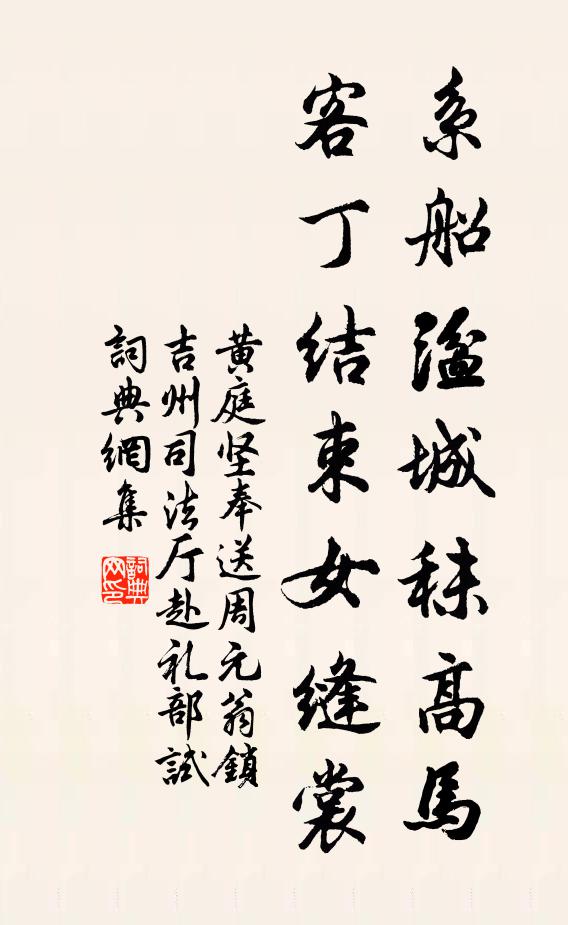 系船湓城秣高馬
客丁結束女縫裳
黄庭坚奉送周元翁鎖
吉州司法厅赴礼部試
詞典網集
詞典网印